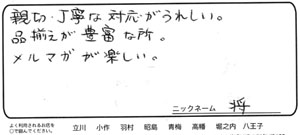 親切・丁寧な対応がうれしい。
品揃えが豊富な所。
メルマガが楽しい。
ニックネーム 将
よく利用されるお店を
○で囲んでください。
立川 小作 羽村 昭島 青梅 高幡 堀之内 八王子